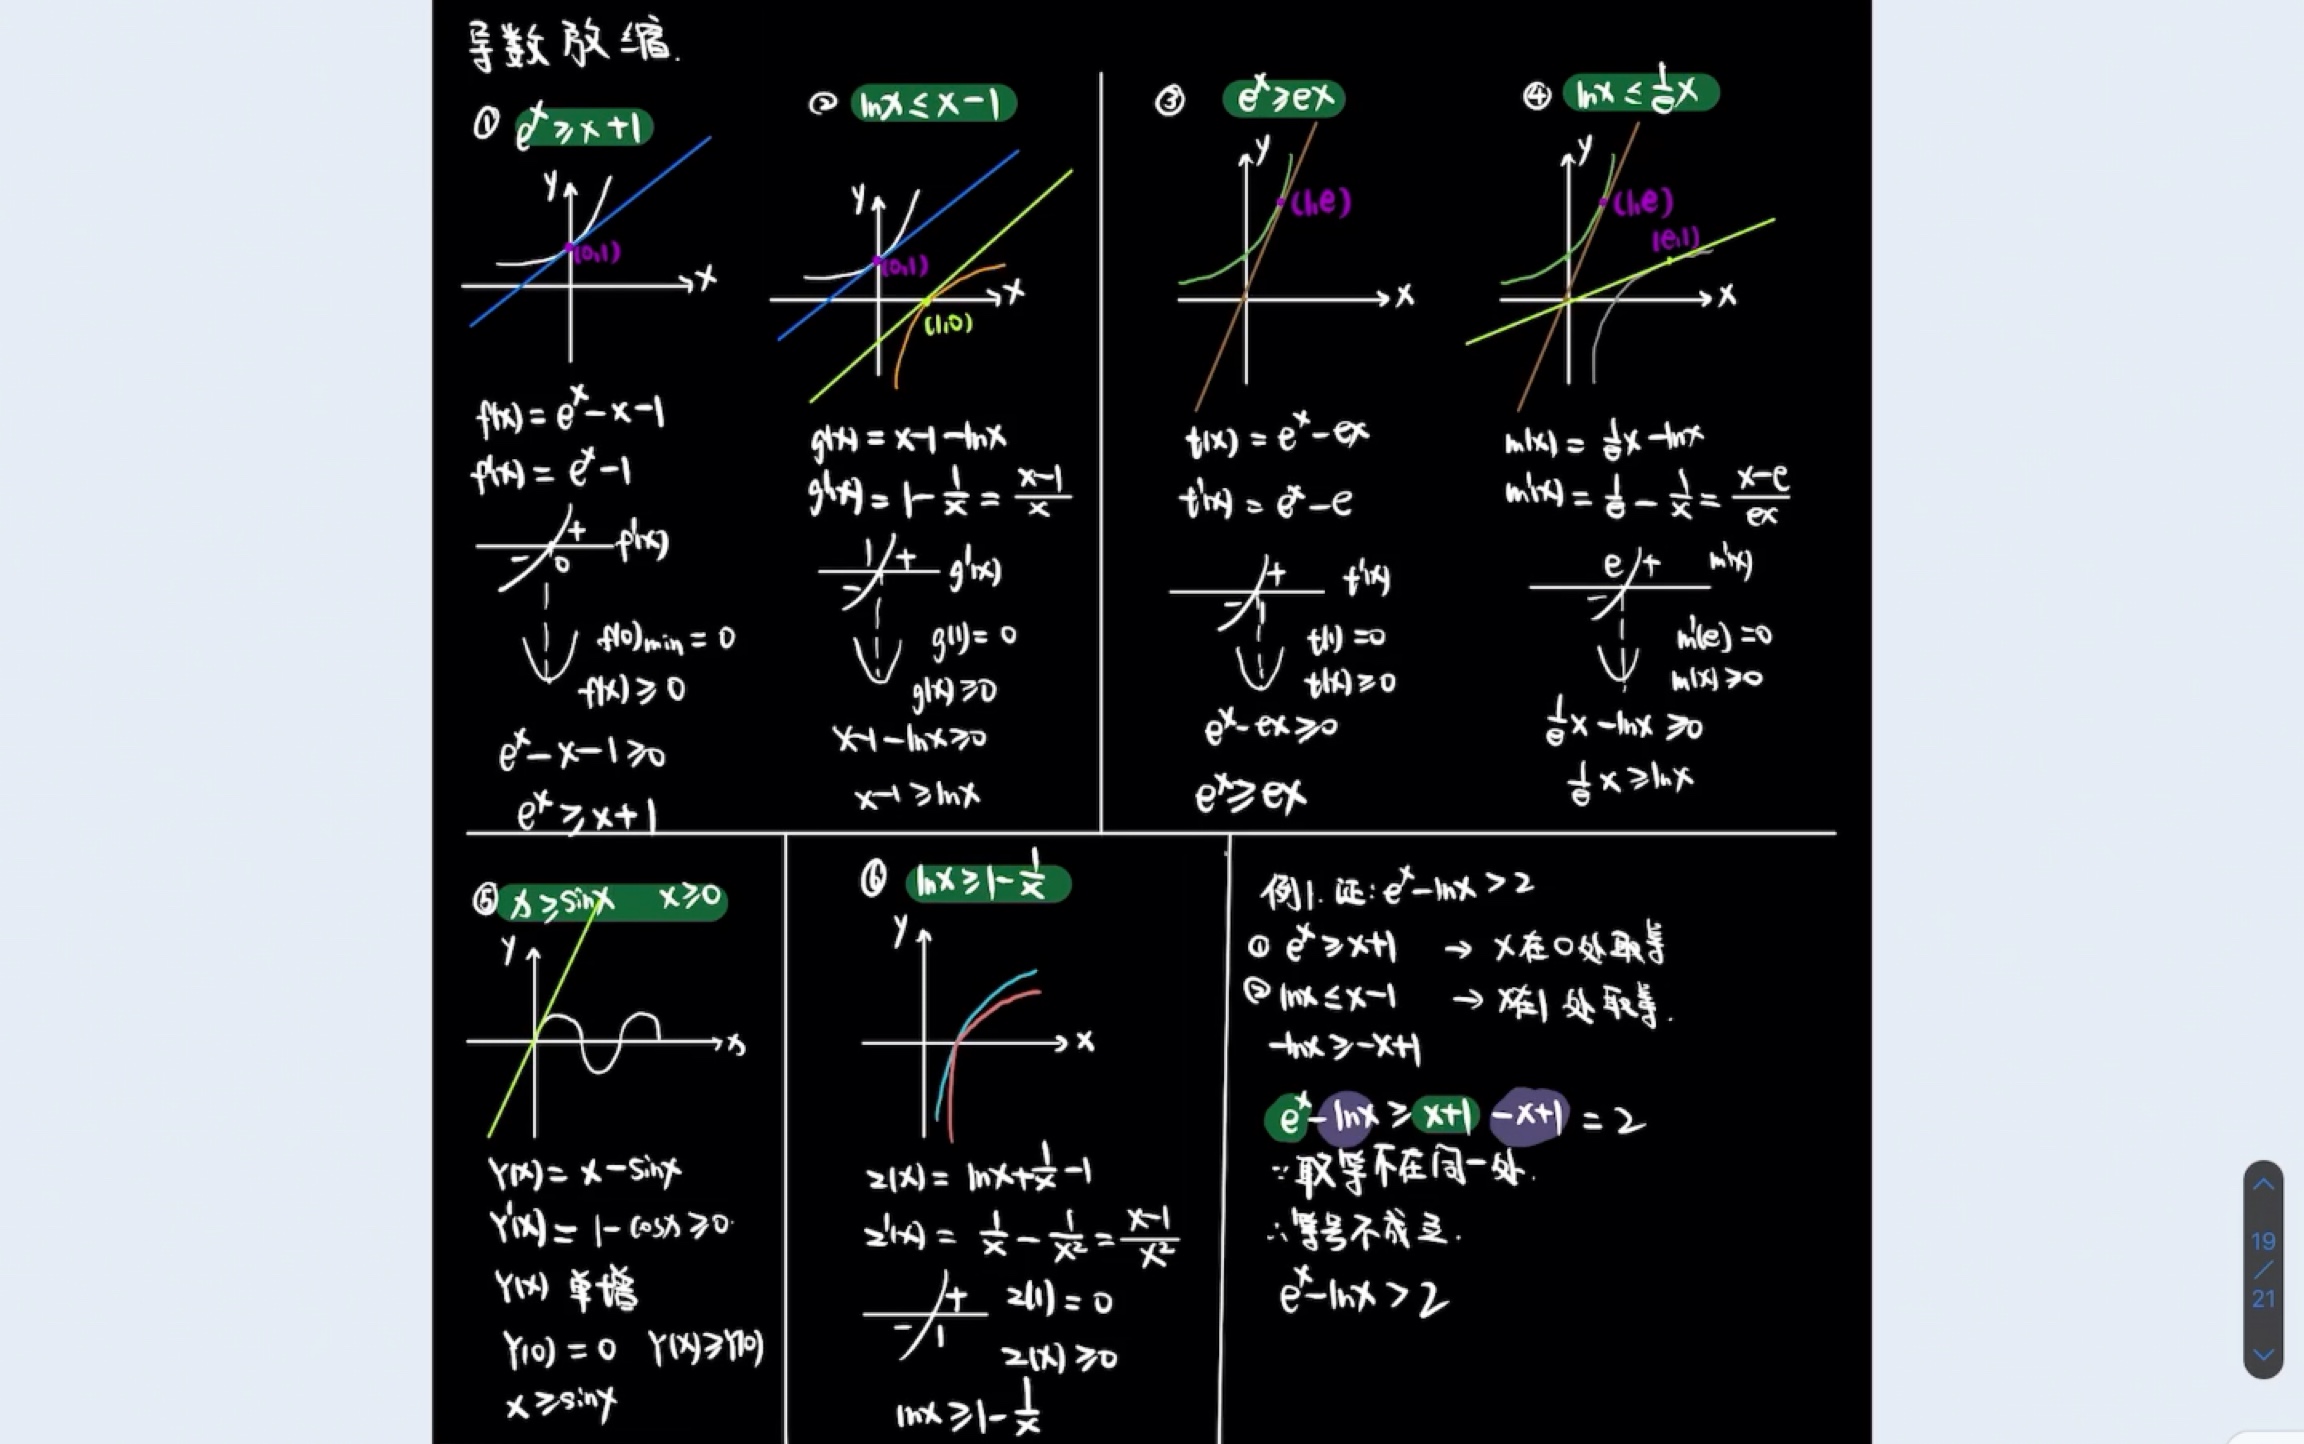 导数放缩.
① eˣ≥x+1
y
(0,1)
x
f(x)=eˣ-x-1
f'(x)=eˣ-1
+
f'(x)
- 0
f(0)min=0
f(x)≥0
eˣ-x-1≥0
eˣ≥x+1
② lnx≤x-1
y
(0,1)
x
(1,0)
g(x)=x-1-lnx
g'(x)=1-1/x=(x-1)/x
1 +
g'(x)
-
g(1)=0
g(x)≥0
x-1-lnx≥0
x-1≥lnx
③ eˣ≥ex
y
(1,e)
x
t(x)=eˣ-ex
t'(x)=eˣ-e
+
t'(x)
- 1
t(1)=0
t(x)≥0
eˣ-ex≥0
eˣ≥ex
④ lnx≤1/e x
y
(1,e)
(e,1)
x
m(x)=1/e x-lnx
m'(x)=1/e-1/x=(x-e)/ex
e +
m'(x)
-
m'(e)=0
m(x)≥0
1/e x-lnx≥0
1/e x≥lnx
⑤ x≥sinx x≥0
y
x
Y(x)=x-sinx
Y'(x)=1-cosx≥0
Y(x) 单增
Y(0)=0 Y(x)≥Y(0)
x≥sinx
⑥ lnx≥1-1/x
y
x
z(x)=lnx+1/x-1
z'(x)=1/x-1/x²=(x-1)/x²
+
- 1
z(1)=0
z(x)≥0
lnx≥1-1/x
例1.证:eˣ-lnx>2
① eˣ≥x+1 → x在0处取等
② lnx≤x-1 → x在1处取等.
-lnx≥-x+1
eˣ-lnx≥x+1-x+1=2
∵取等不在同一处.
∴等号不成立.
eˣ-lnx>2
19
/
21